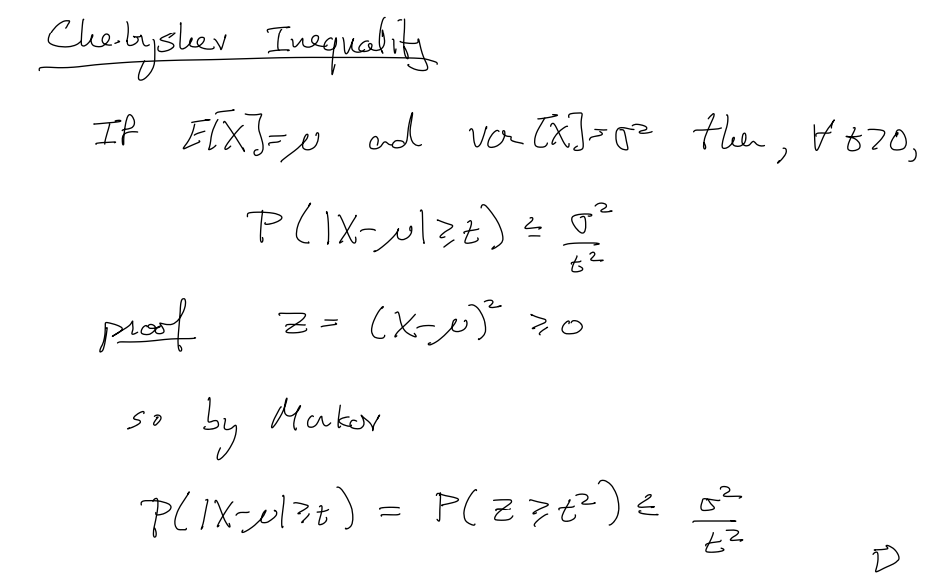 Chebyshev Inequality
If E[X]=μ and var[X]=σ² then, ∀ t>0,
P(|X-μ|≥t) ≤ σ²/t²
proof Z = (X-μ)² ≥0
so by Markov
P(|X-μ|≥t) = P(Z≥t²) ≤ σ²/t²
□